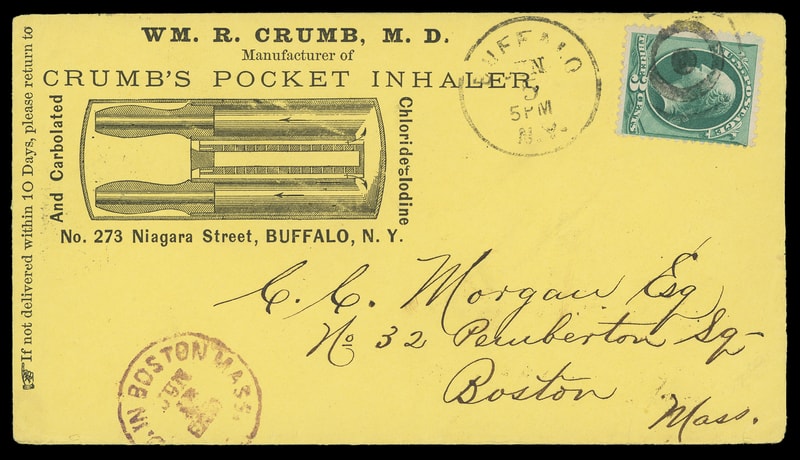 ☞ If not delivered within 10 Days, please return to
WM. R. CRUMB, M. D.
Manufacturer of
CRUMB'S POCKET INHALER
And Carbolated
Chloride of Iodine
No. 273 Niagara Street, BUFFALO, N. Y.
BUFFALO
5 PM
N.Y.
U.S. POSTAGE
3
THREE CENTS
C. C. Morgan Esq
No 32 Pemberton Sq
Boston
Mass.
IN BOSTON MASS.